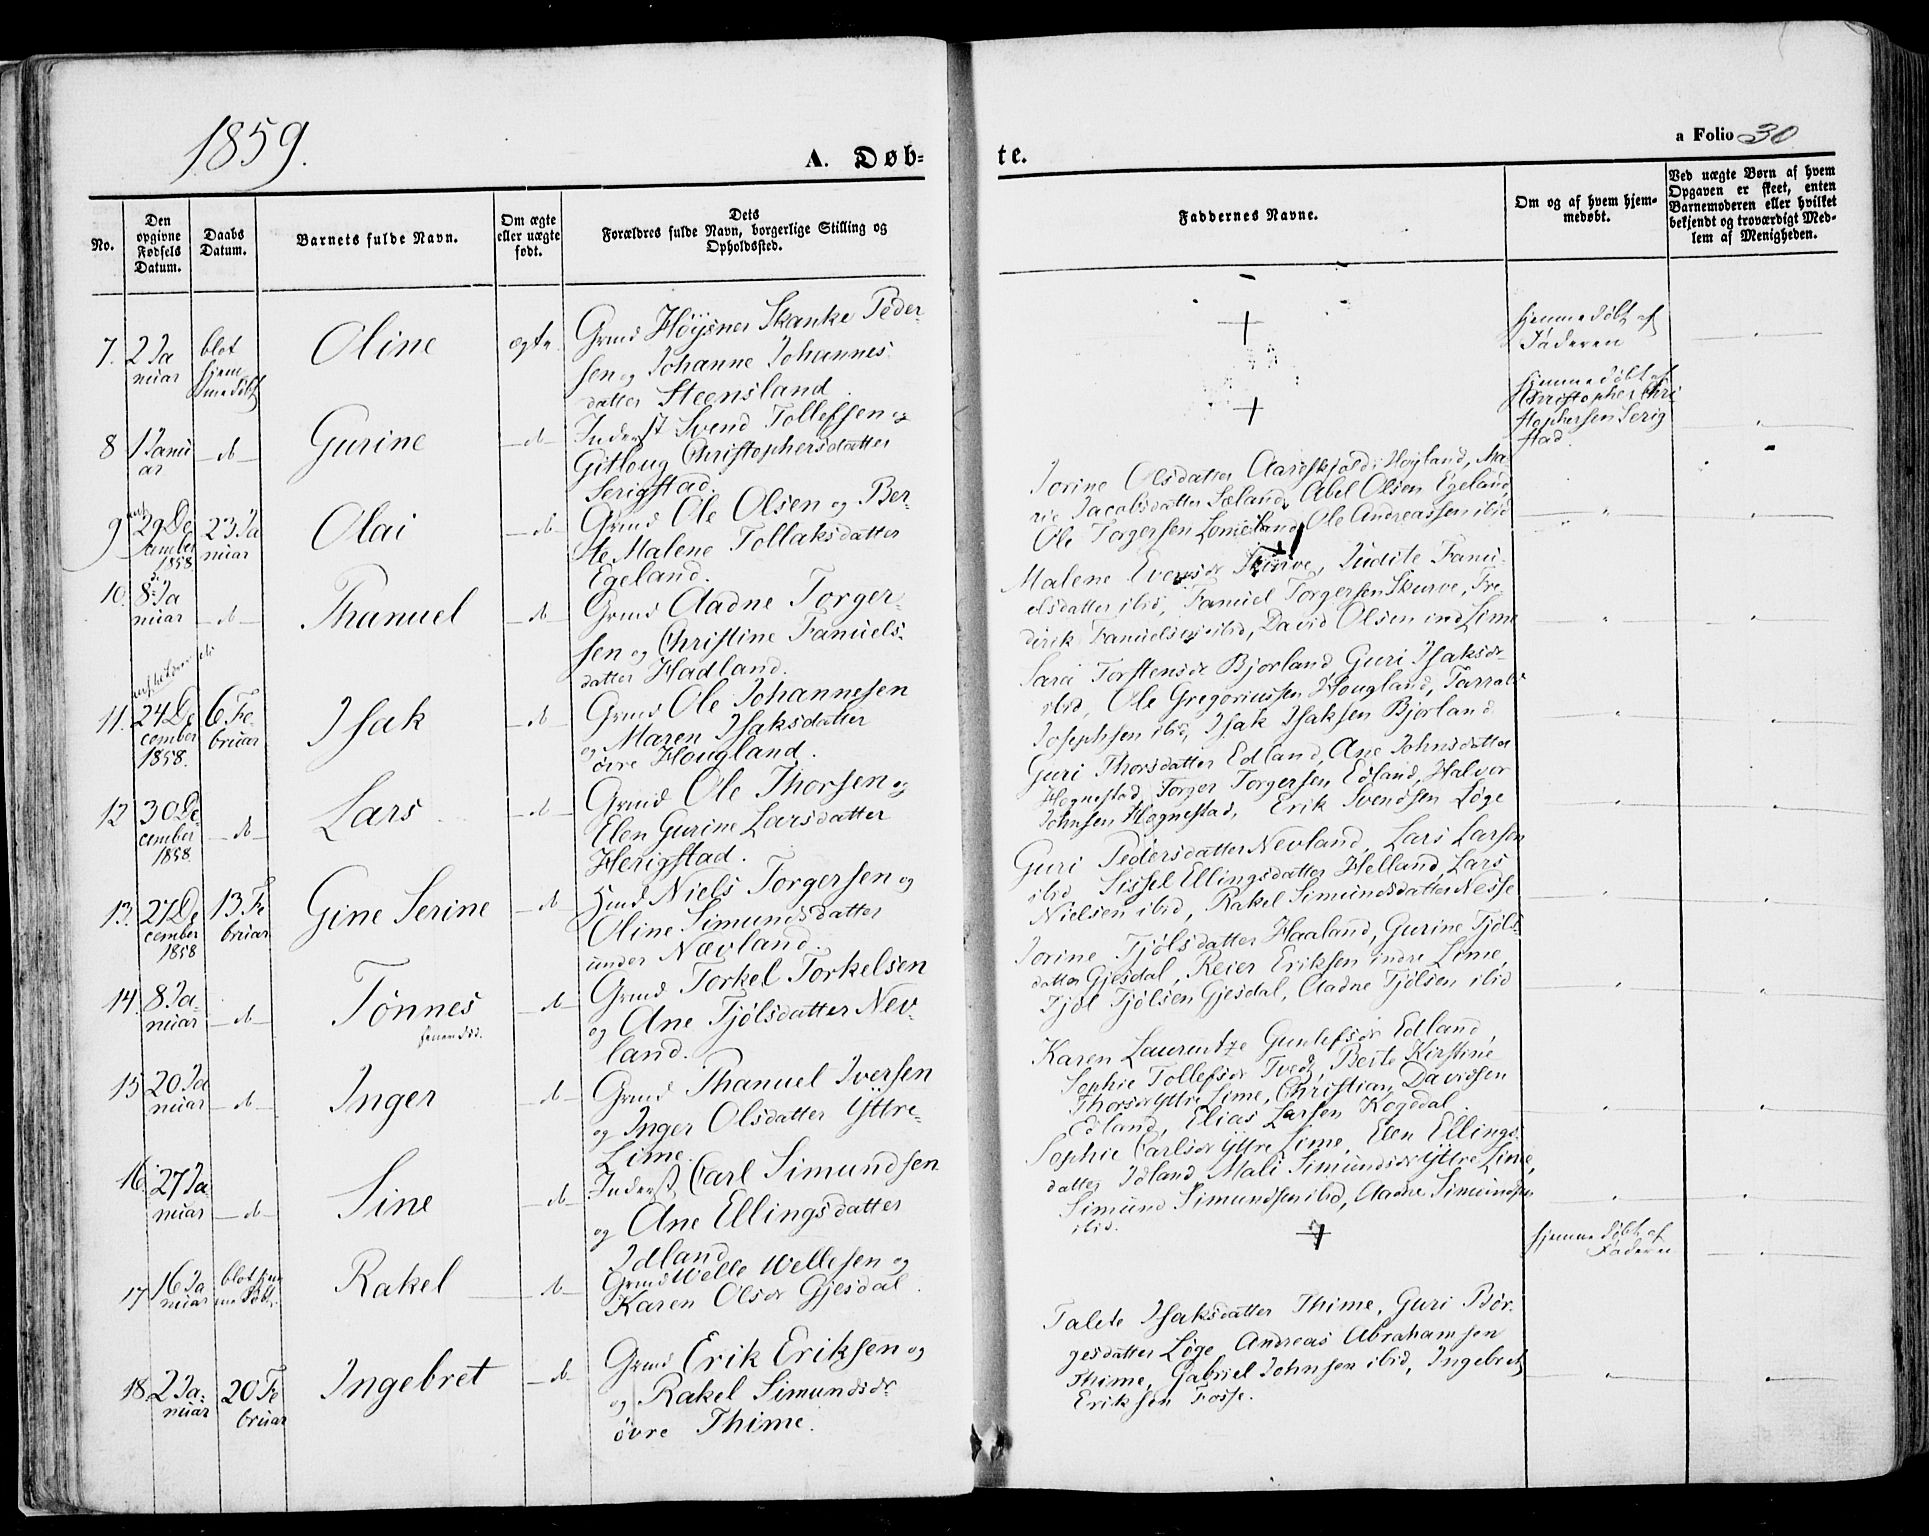 1859.
A. Døb-
te.
a Folio 30
No.
Den
opgivne
Fødsels
Datum.
Daabs
Datum.
Barnets fulde Navn.
Om ægte
eller uægte
født.
Dets
Forældres fulde Navn, borgerlige Stilling og
Opholdssted.
Faddernes Navne.
Om og af hvem hjem-
medøbt.
Ved uægte Børn af hvem
Opgaven er skeet, enten
Barnemoderen eller hvilket
bekjendt og troværdigt Med-
lem af Menigheden.
7.
2 Ja
nuar
blot
hjem
medöbt
Oline
ægte
Grmd Höysner Skanke Peder-
sen og Johanne Johannes
datter Steensland.
+
hjemmedöbt af
Faderen
8
1 Janu
ar
d
Gurine
d
Inderst Svend Tollefsen og
Gitloug Christophersdatter
Serigstad.
+
hjemmedöbt af
Christopher Chri
stophersen Serig
stad.
9
29 De
cember
1858
23 Ja
nuar
Olai
d
Grmd Ole Olsen og Ber-
te Malene Tollaksdatter
Egeland.
Jorine Olsdatter Höyland, Ma-
rie Jacobsdatter Sæland, Abel Olsen Egeland,
Ole Torgersen Ole Andreassen ibid
10.
8 Ja
nuar
d
Thanuel
d
Grmd Aadne Torger-
sen og Christine Fanuels-
datter Hadland.
Malene Skurve, Judite Fanu-
elsdatter ibid, Fanuel Torgersen Skurve, Fre
derik Fanuelsen ibid, David Olsen ind Lime
11.
24 De
cember
1858.
6 Fe-
bruar
Isak
d
Grmd Ole Johannesen
og Maren Isaksdatter
övre Hougland.
Sara Torstensdr Bjorland Guri Isaksdr
ibid, Ole Gregoriussen Hougland, Tarrald
Josephsen ibid, Isak Isaksen Bjorland
12
30 De-
cember
1858
d
Lars
d
Grmd Ole Thorsen og
Elen Gurine Larsdatter
Herigstad.
Guri Thorsdatter Edland, Ane Johnsdatter
Hognestad, Torger Torgersen Edland, Halvor
Johnsen Hognestad, Erik Svendsen Löge
13.
27 De
cember
1858
13 Fe
bruar
Gine Serine
d
Hmd Niels Torgersen og
Oline Simundsdatter
under Nævland.
Guri Pedersdatter Nevland, Lars Larsen
ibid Sissel Ellingsdatter Helland, Lars
Nielsen ibid, Rakel Simundsdatter Nesse
14.
8 Ja-
nuar
d
Tönnes
d
Grmd Torkel Torkelsen
og Ane Tjölsdatter Nev-
land.
Jorine Tjölsdatter Haaland, Gurine Tjöls-
datter Gjesdal, Reier Eriksen indre Lime,
Tjöl Tjölsen Gjesdal, Aadne Tjölsen ibid
15
20 Ja
nuar
d
Inger
d
Grmd Thanuel Iversen
og Inger Olsdatter Yttre-
Lime.
Karen Laurentze Gunlefsdr Edland,
Sophie Tollefsdr Tvedt, Berte Kirstine
Thorsdr Yttre Lime, Christian Davidsen
Edland, Elias Larsen Kogedal.
16.
27 Ja
nuar
d
Sine
d
Inderst Carl Simundsen
og Ane Ellingsdatter
Idland
Sophie Carlsdr Yttre Lime, Elen Ellings-
datter Idland Mali Simundsdr Yttre Lime,
Simund Simundsen ibid, Aadne Simundsen
ibid.
17
16 Ja
nuar
blot hjem
medöbt.
Rakel
d
Grmd Welle Wellesen og
Karen Olsdr Gjesdal.
+
hjemmedöbt af
Faderen
18.
2 Ja-
nuar
20 Fe
bruar
Ingebret
d
Grmd Erik Eriksen og
og Rakel Simundsdr
övre Thime.
Talete Isaksdatter Thime, Guri Bör-
gesdatter Löge, Andreas Abrahamsen
Thime, Gabriel Johnsen ibid, Ingebret
Eriksen Fosse.